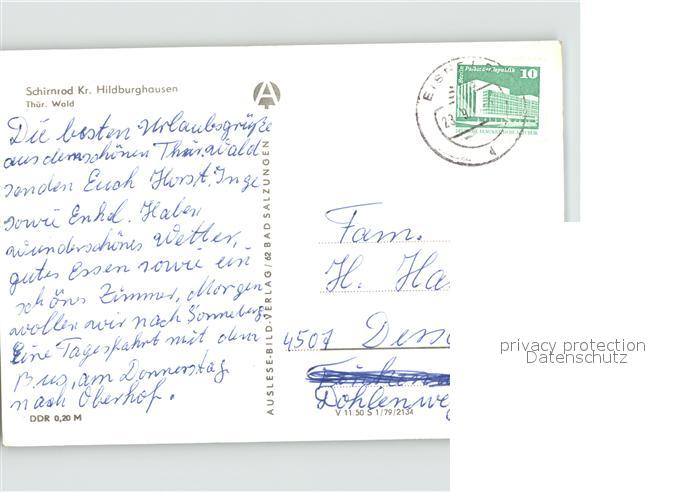 Schirnrod Kr. Hildburghausen
Thür. Wald
Die besten Urlaubsgrüße
aus dem schönen Thür. Wald
senden Euch Horst, Inge
sowie Enkel. Haben
wunderschönes Wetter,
gutes Essen sowie ein
schönes Zimmer, Morgen
wollen wir nach Sonneberg.
Eine Tagesfahrt mit dem
Bus, am Donnerstag
nach Oberhof.
DDR 0,20 M
AUSLESE-BILD-VERLAG/62 BAD SALZUNGEN
Palast der Republik
10
Fam.
H. Ha
4501 Dess
Dohlenweg
V 11 50 S 1/79/2134
privacy protection
Datenschutz